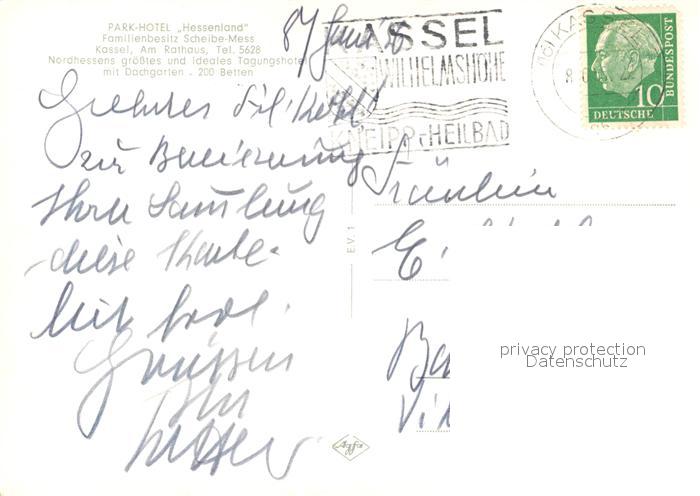 PARK-HOTEL „Hessenland"
Familienbesitz Scheibe-Mess
Kassel, Am Rathaus, Tel. 5628
Nordhessens größtes und ideales Tagungshotel
mit Dachgarten - 200 Betten
KASSEL
WILHELMSHÖHE
KNEIPP-HEILBAD
KASSEL
10
DEUTSCHE
BUNDESPOST
Geehrtes Frl.
zur Bereicherung
Ihrer Sammlung
diese Karte.
Mit frdl.
Grüssen
Ihr
Fräulein
E.
E.V. 1
privacy protection
Datenschutz
Agfa